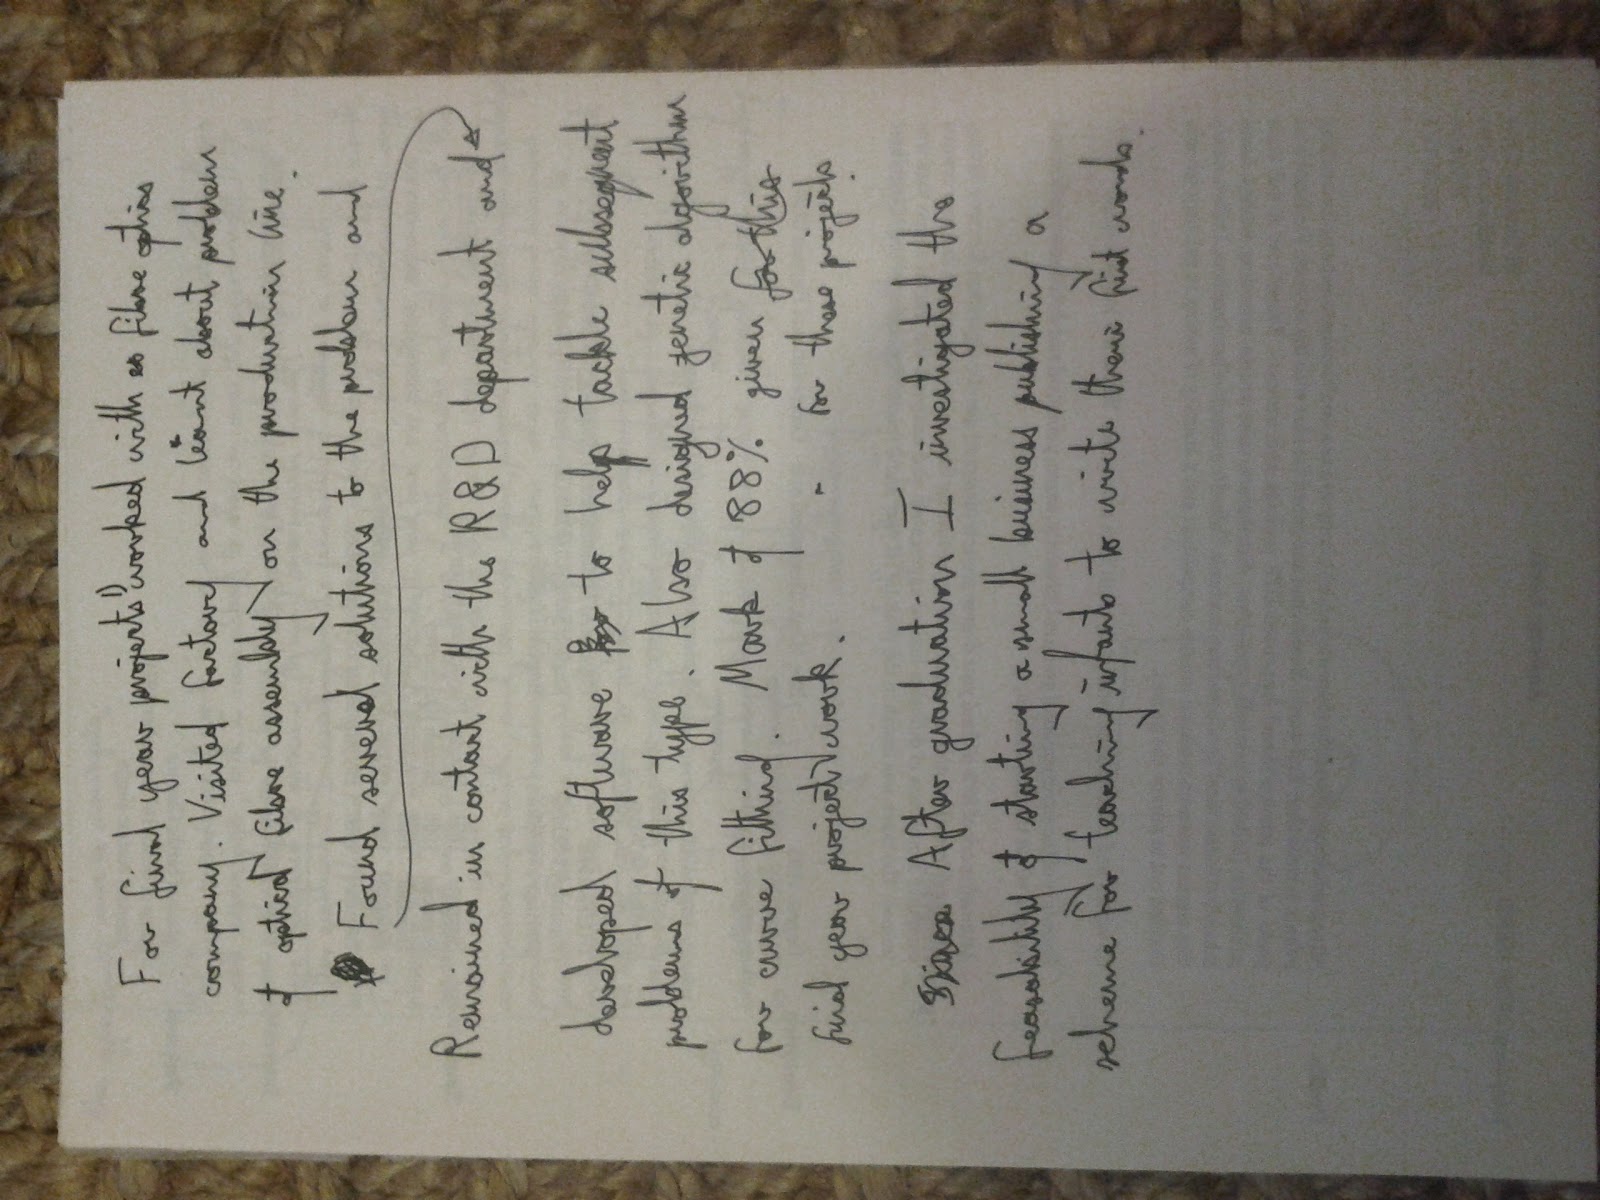 For final year projects I) worked with a fibre optics
company. Visited factory and learnt about problem
of optical fibre assembly on the production line.
Found several solutions to the problem and
Remained in contact with the R&D department and
developed software to help tackle subsequent
problems of this type. Also designed genetic algorithm
for curve fitting. Mark of 88% given for this
final year project work. " for these projects.
After graduation I investigated the
feasability of starting a small business publishing a
scheme for teaching infants to write their first words.